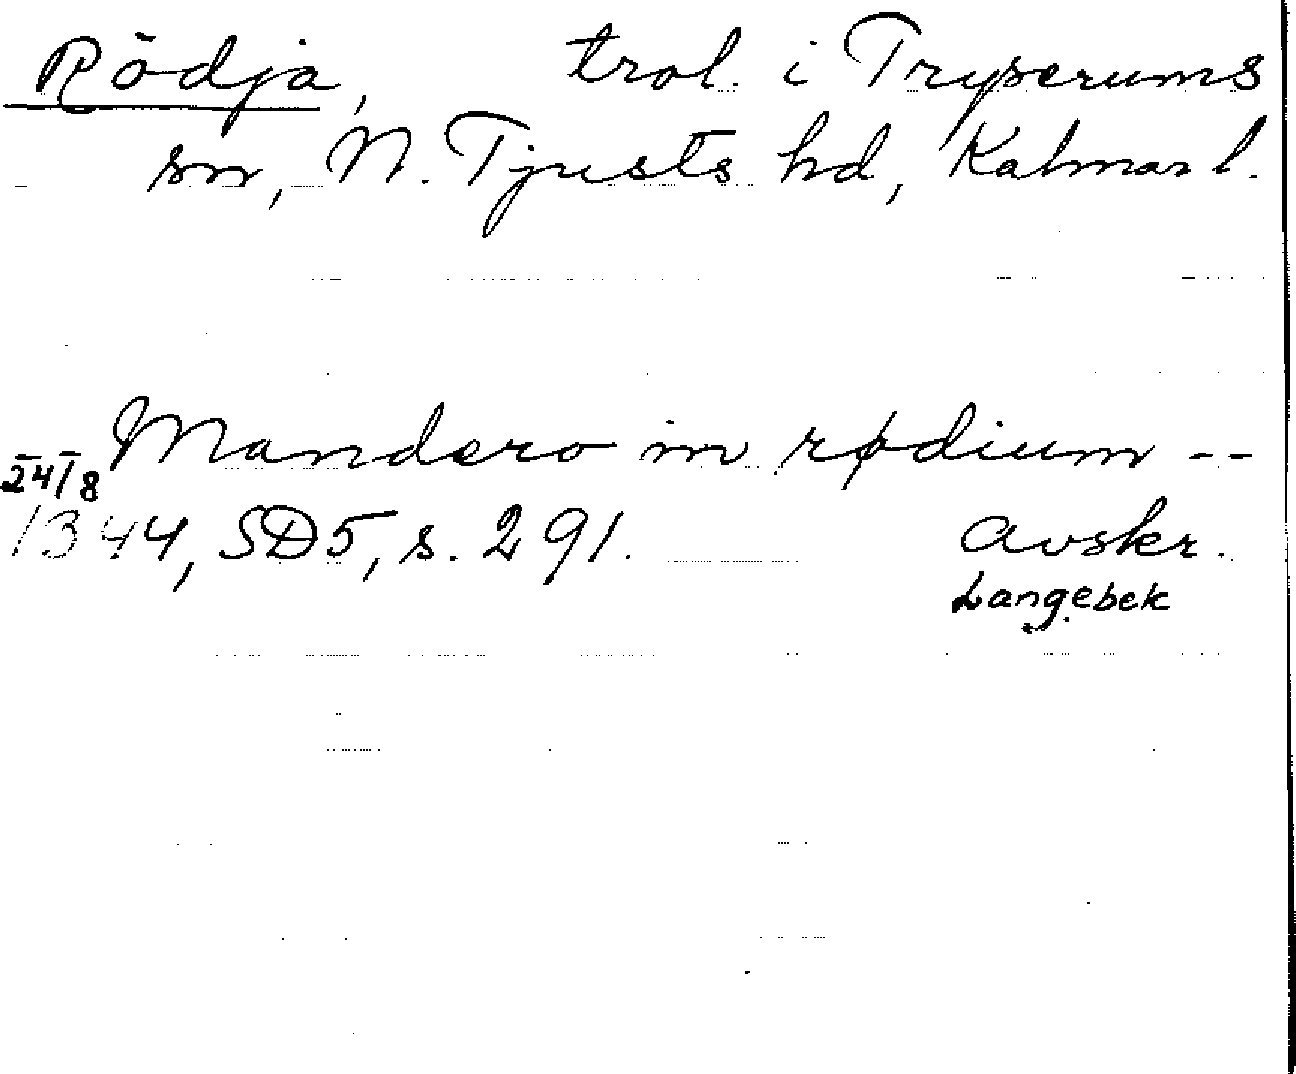 Rödja, trol. i Tryserums
sn, N. Tjusts hd, Kalmar l.
Mandero in rødium --
24/8
1344, SD5, s. 291. Avskr.
Langebek